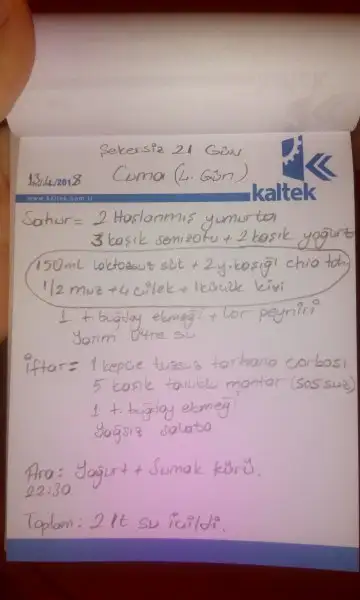 Şekersiz 21 Gün
Cuma (4. Gün)
/2018
www.kaltek.com.tr
kaltek
Sahur = 2 Haşlanmış yumurta
3 kaşık semizotu + 2 kaşık yoğurt
150 ml laktozsuz süt + 2 y.kaşığı chia toh
1/2 muz + 4 çilek + 1 küçük kivi
1 t buğday ekmeği + lor peyniri
Yarım litre su
İftar = 1 kepçe tuzsuz tarhana çorbası
5 kaşık tavuklu mantar (sossuz)
1 t. buğday ekmeği
Yağsız salata
Ara: Yoğurt + Sumak kürü.
22:30
Toplam: 2 lt su içildi.